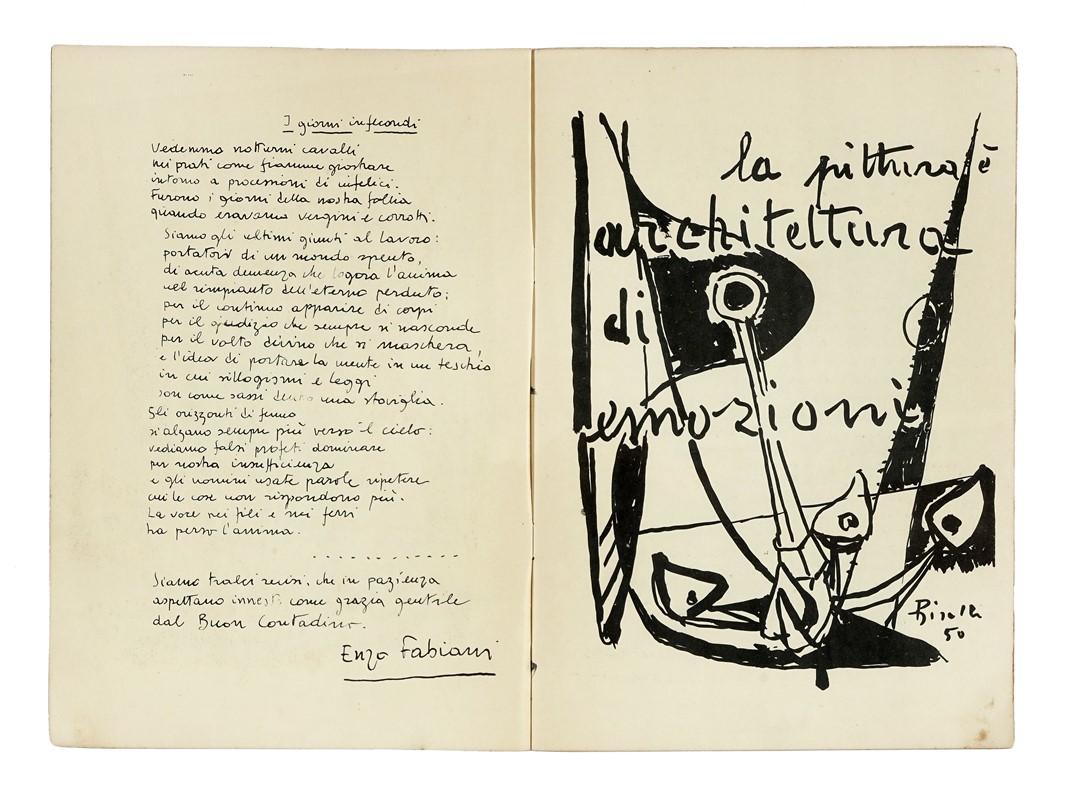 I giorni infecondi
Vedemmo notturni cavalli
nei prati come fiamme giostrare
intorno a processioni di infelici.
Furono i giorni della nostra follia
quando eravamo vergini e corrotti.
Siamo gli ultimi giunti al lavoro:
portatori di un mondo spento,
di acuta demenza che logora l'anima
nel rimpianto dell'eterno perduto;
per il continuo apparire di corpi
per il giudizio che sempre si nasconde
per il volto divino che si maschera,
e l'idea di portare la mente in un teschio
in cui sillogismi e leggi
son come sassi dentro una stoviglia.
Gli orizzonti di fumo
s'alzano sempre più verso il cielo:
vediamo falsi profeti dominare
per nostra insufficienza
e gli uomini usate parole ripetere
cui le cose non rispondono più.
La voce nei fili e nei ferri
ha perso l'anima.
Siamo tralci recisi, che in pazienza
aspettano innesti come grazia gentile
dal Buon Contadino.
Enzo Fabiani
la pittura è
architettura
di
emozioni
Birolli
50